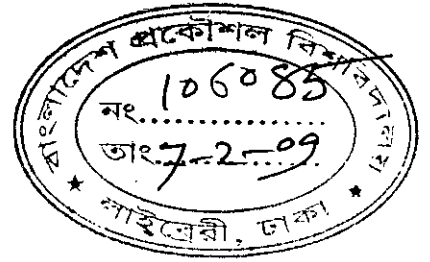 বাংলাদেশ প্রকৌশল বিশ্ববিদ্যালয়
নং 106085
তাং 7-2-09
★ লাইব্রেরী, ঢাকা ★